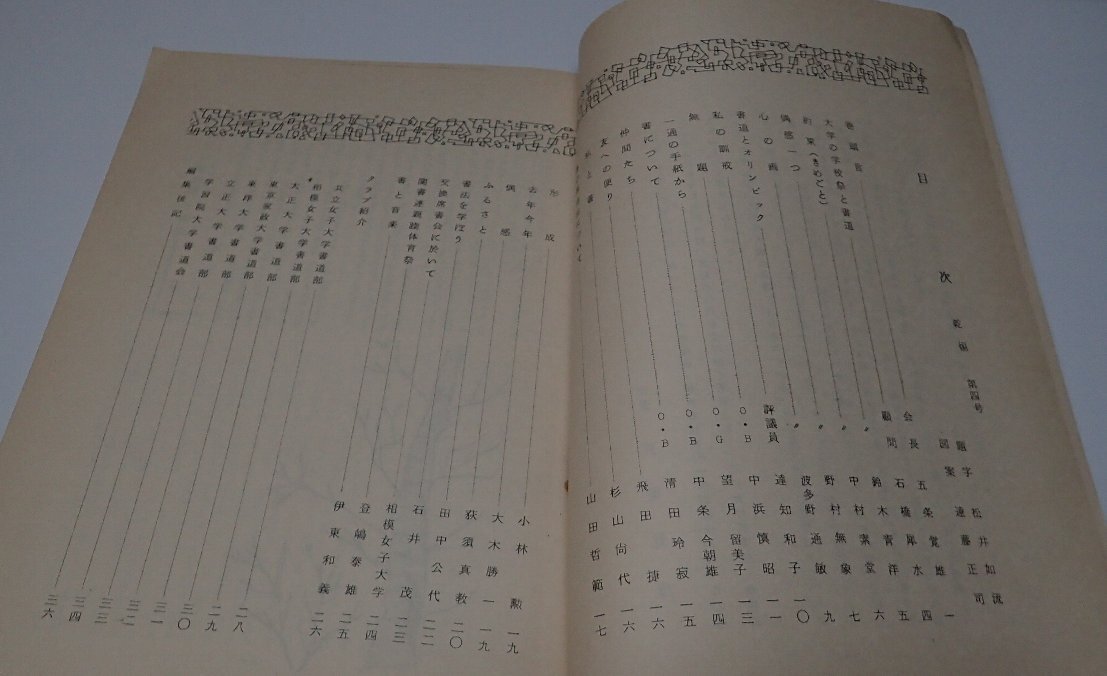 目次
第四号
題字 松井如流
図案 遠藤正司
巻頭言 会長 五条覚雄 一
大学の学校祭と書道 顧問 石橋犀水 四
約束(きめごと) 〃 鈴木青洋 五
偶感一つ 〃 中村素堂 六
心の画 〃 野村無象 七
書道とオリンピック 〃 波多野通敏 九
私の訓戒 評議員 達知和子 一〇
無題 O・B 中浜慎昭 一一
一通の手紙から O・G 望月留美子 一三
書について O・B 中条今朝雄 一四
仲間たち O・B 清田玲寂 一五
友への便り 飛田捷 一六
私と書 杉山尚代 一六
山田哲範 一七
形成 小林勲 一九
去年今年 大木勝一 一九
偶感 荻須真教 二〇
ふるさと 田中公代 二二
書法を学ぼう 石井茂 二三
交換席書会に於いて 相模女子大学 二四
関書連親睦体育祭 登嶋泰雄 二五
書と音楽 伊東和義 二六
クラブ紹介
共立女子大学書道部 二八
相模女子大学書道部 二九
大正大学書道部 三〇
東京家政大学書道部 三一
東洋大学書道部 三二
立正大学書道部 三三
学習院大学書道会 三四
編集後記 三六